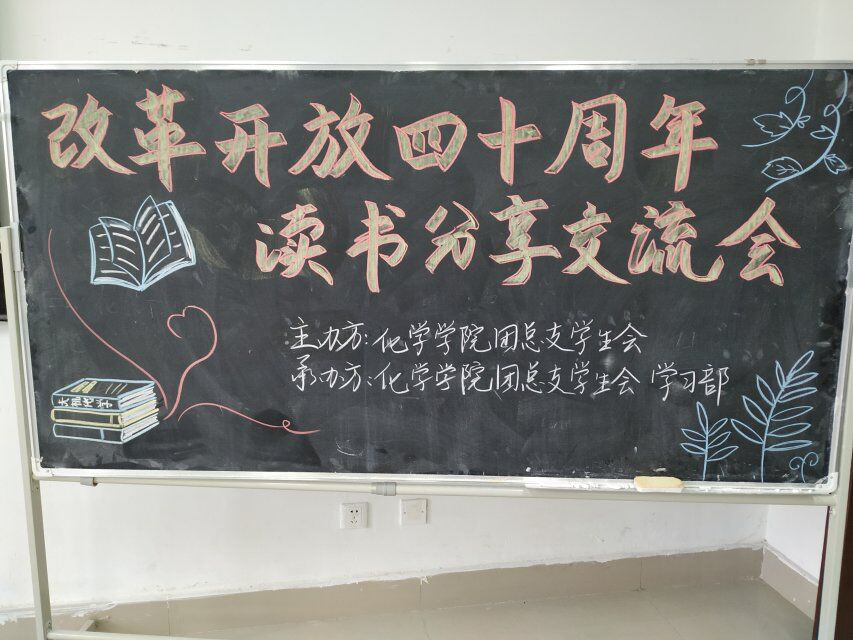 改革开放四十周年
读书分享交流会
主办方:化学学院团总支学生会
承办方:化学学院团总支学生会 学习部